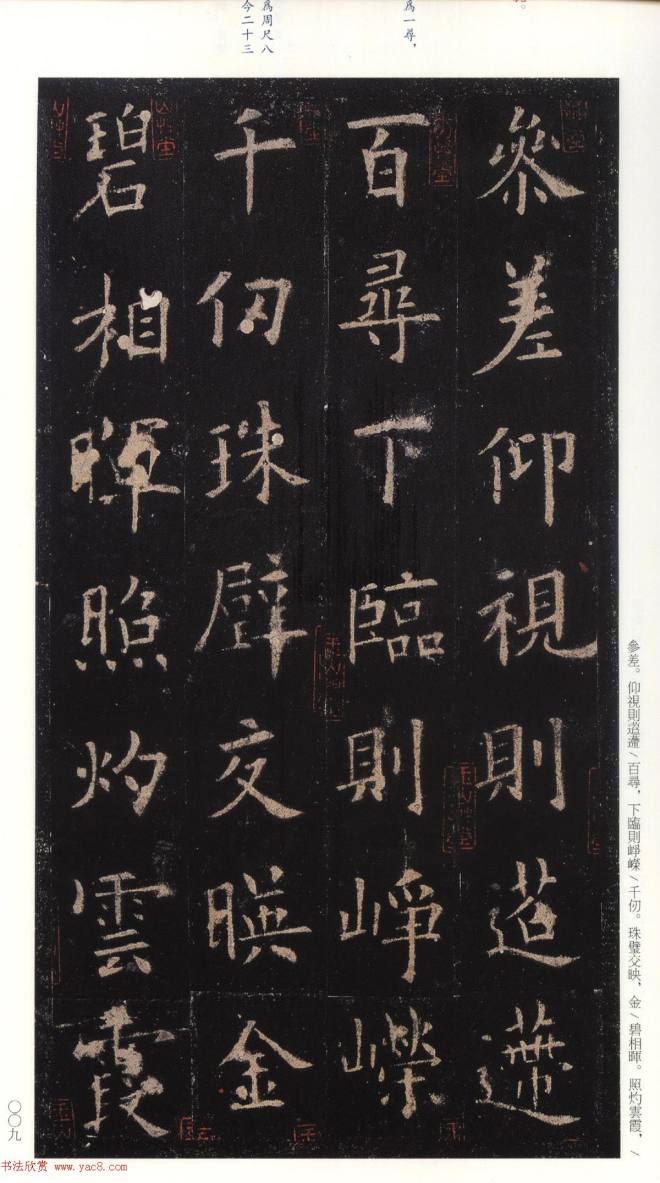 為一尋，
為周尺八
今二十三
叅差仰視則迢𨗿
百尋下臨則崢嶸
千仞珠壁交暎金
碧相暉照灼雲霞
參差。仰視則迢遰/百尋，下臨則崢嶸/千仞。珠璧交映，金/碧相暉。照灼雲霞，/
〇〇九
书法欣赏 www.yac8.com